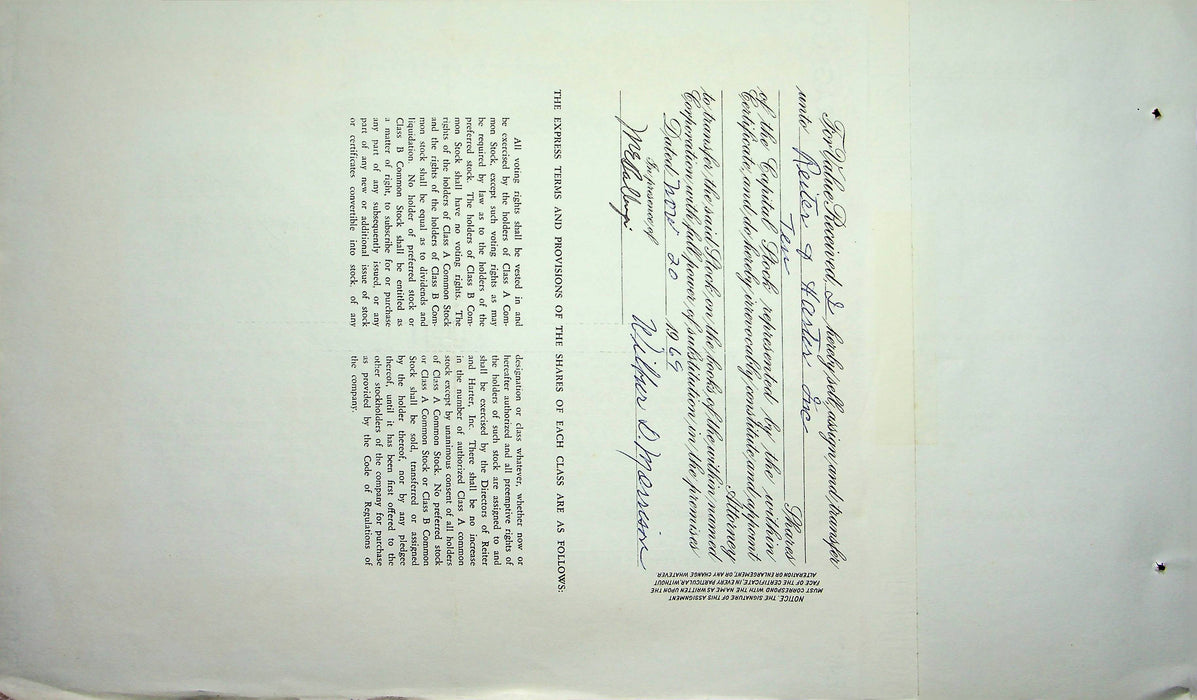 For Value Received, I hereby sell, assign, and transfer
unto Reiter & Harter Inc
Ten Shares
of the Capital Stock represented by the within
Certificate, and do hereby irrevocably constitute and appoint
Attorney
to transfer the said Stock on the books of the within named
Corporation with full power of substitution in the premises
Dated Nov 20 1969
In presence of
Wilbur D. Morrison
NOTICE. THE SIGNATURE OF THIS ASSIGNMENT
MUST CORRESPOND WITH THE NAME AS WRITTEN UPON THE
FACE OF THE CERTIFICATE, IN EVERY PARTICULAR, WITHOUT
ALTERATION OR ENLARGEMENT, OR ANY CHANGE WHATEVER.
THE EXPRESS TERMS AND PROVISIONS OF THE SHARES OF EACH CLASS ARE AS FOLLOWS:
All voting rights shall be vested in and
be exercised by the holders of Class A Com-
mon Stock, except such voting rights as may
be required by law as to the holders of the
preferred stock. The holders of Class B Com-
mon Stock shall have no voting rights. The
rights of the holders of Class A Common Stock
and the rights of the holders of Class B Com-
mon stock shall be equal as to dividends and
liquidation. No holder of preferred stock or
Class B Common Stock shall be entitled as
a matter of right, to subscribe for or purchase
any part of any subsequently issued, or any
part of any new or additional issue of stock
or certificates convertible into stock, of any
designation or class whatever, whether now or
hereafter authorized and all preemptive rights of
the holders of such stock are assigned to and
shall be exercised by the Directors of Reiter
and Harter, Inc. There shall be no increase
in the number of authorized Class A common
stock except by unanimous consent of all holders
of Class A Common Stock. No preferred stock
or Class A Common Stock or Class B Common
Stock shall be sold, transferred or assigned
by the holder thereof, nor by any pledgee
thereof, until it has been first offered to the
other stockholders of the company for purchase
as provided by the Code of Regulations of
the company.